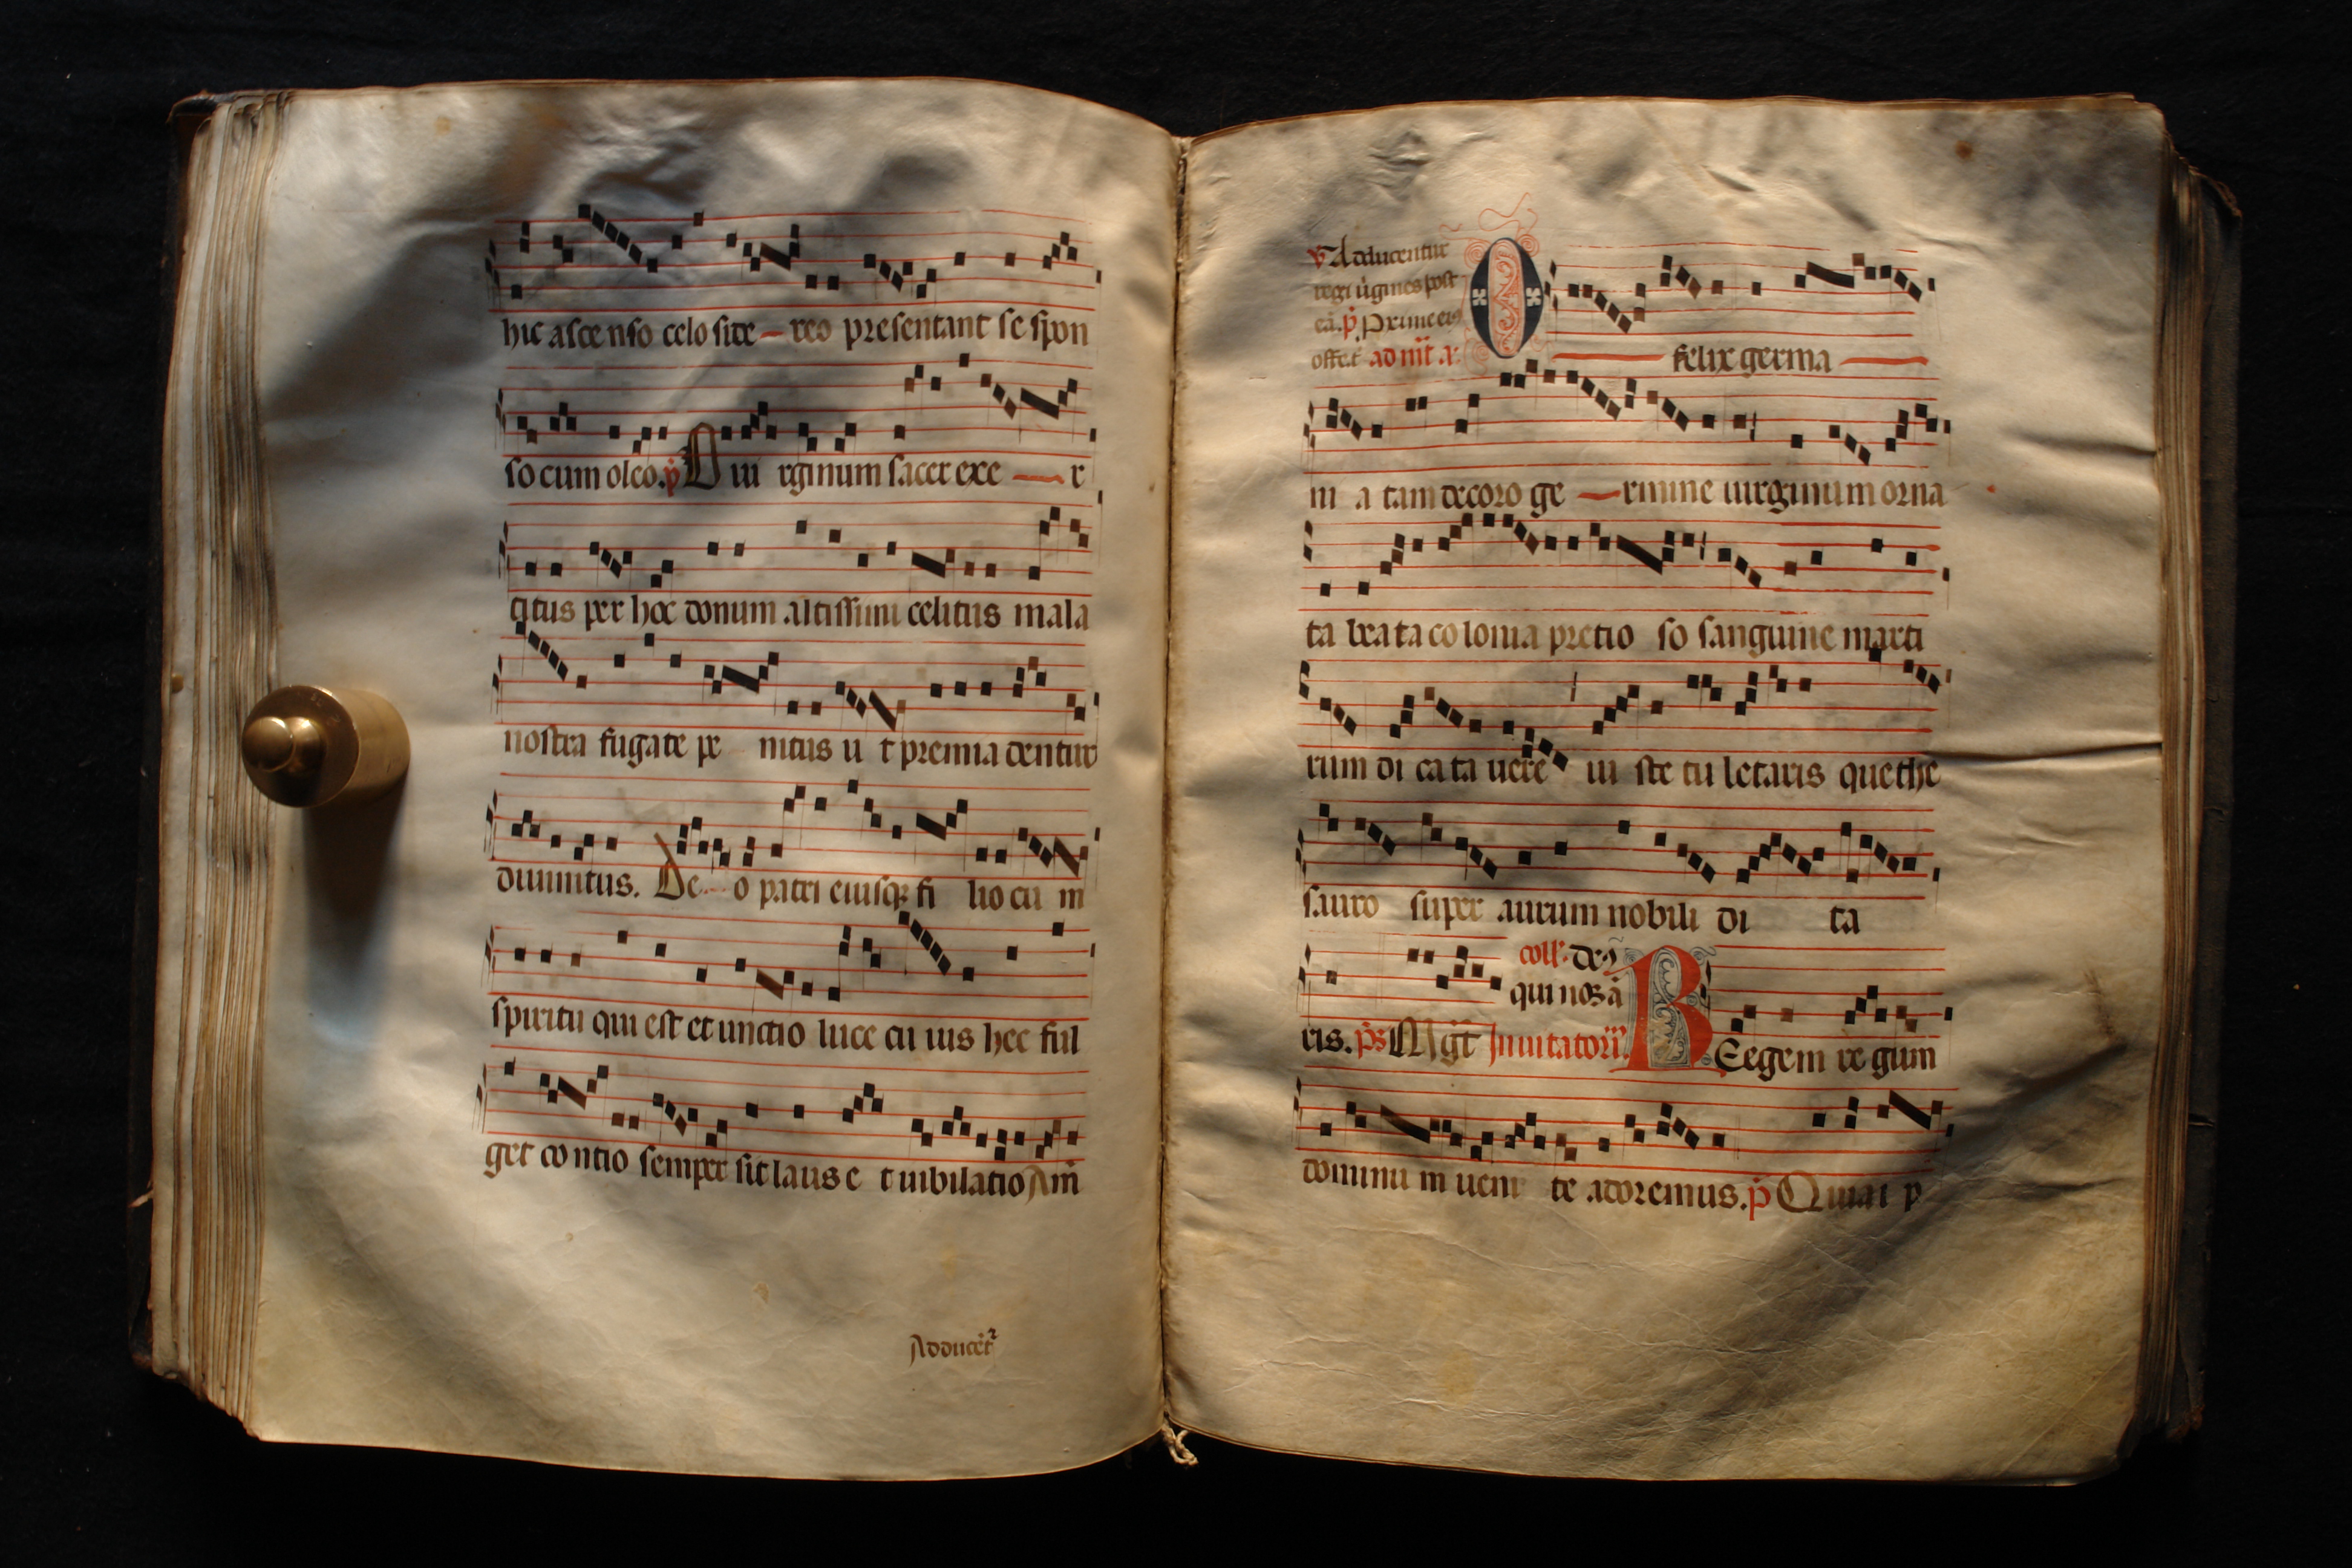 hic asce nso celo site reo presentant se spon
so cum oleo. p̃ O ui rginum sacer exe r
citus per hoc donum altissimi celitus mala
nostra fugate pe nitus u t premia dentur
diuinitus. De o patri eiusq; fi lio cu m
spiritu qui est et unctio luce cu ius hec ful
get co ntio semper sit laus e t iubilatio Am̃
Adducẽt²
℣ Adducentur
regi uĩgines post
eã. p̃ Proxime eiꝰ
offe.t̃ ad m̃t a.
O felix germa
ni a tam decoro ge rmine uirginum orna
ta bea ta co lonia pretio so sanguine marti
rum di ca ta uere iu ste tu letaris que the
sauro super aurum nobili di ta
coll'. deꝰ
qui nos ã
ris. p̃s Mg̃t Inuitatoriũ. R Eegem re gum
dominu m ueni te adoremus. p̃ Quia i p